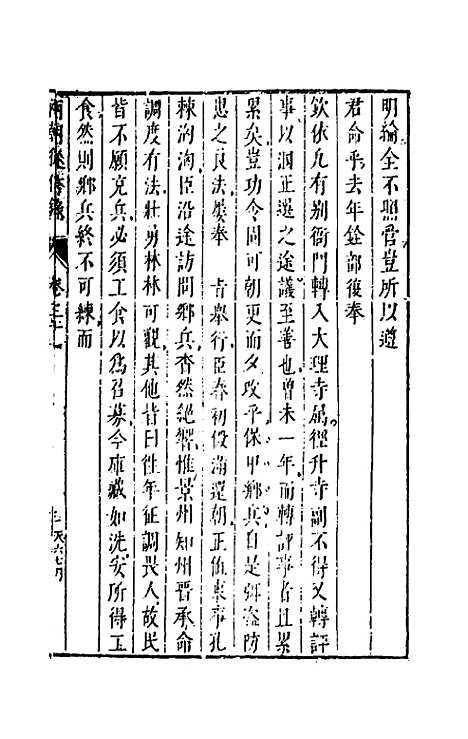 明綸全不照管豈所以遵
君命乎去年銓部復奉
欽依凡有别衙門轉入大理寺屬徑升寺副不得又轉評
事以溷正選之途議至善也曾未一年而轉評事者且累
累矣豈功令固可朝更而夕改乎保甲鄉兵自是弭盜防
患之良法屢奉 旨舉行臣春初役滿還朝正值東事孔
棘洶洶臣沿途訪問鄉兵杳然絕響惟景州知州晉承命
調度有法壯勇林林可觀其他皆曰徃年征調畏人故民
皆不願充兵必須工食以爲召募今庫藏如洗安所得工
食然則鄉兵終不可練而
兩朝從信錄 卷之二十一
天六七月